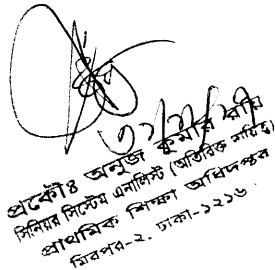 ৩১/১২/১৭
প্রকৌঃ অনুজ কুমার রায়
সিনিয়র সিস্টেম এনালিস্ট (অতিরিক্ত দায়িত্ব)
প্রাথমিক শিক্ষা অধিদপ্তর
মিরপুর-২, ঢাকা-১২১৬